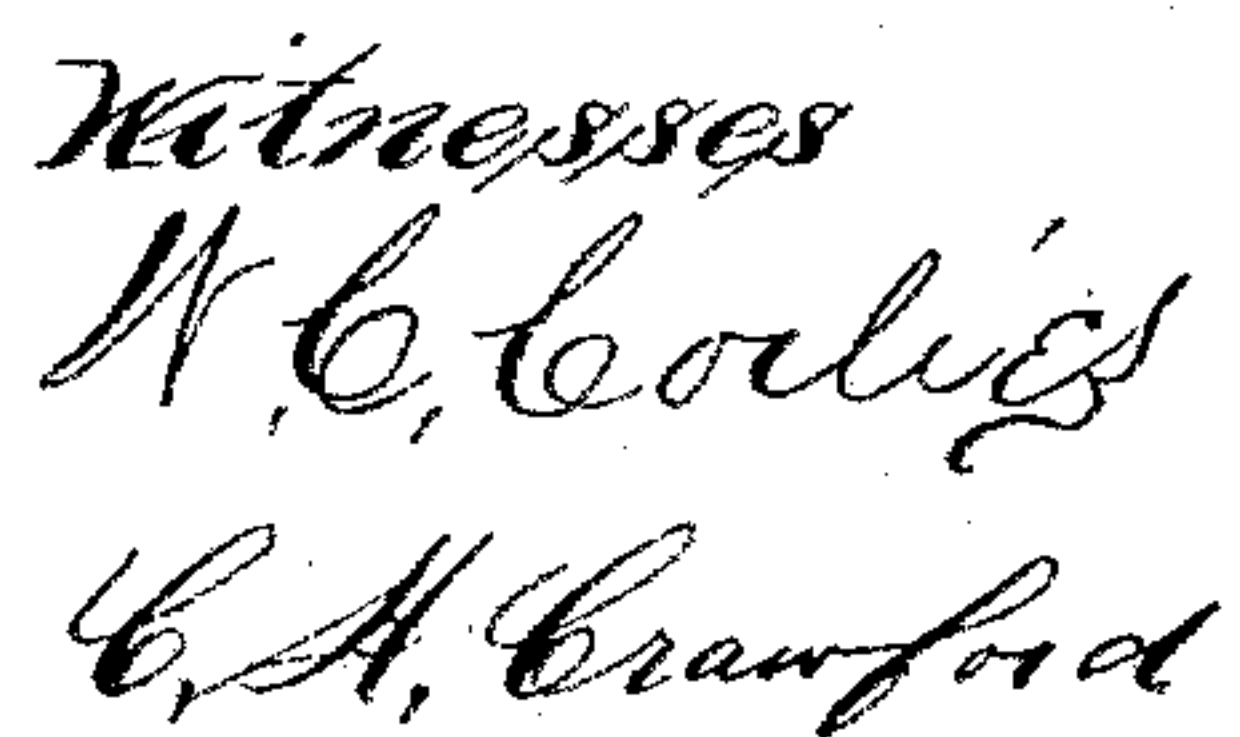 Witnesses
W. C. Corlies
C. H. Crawford